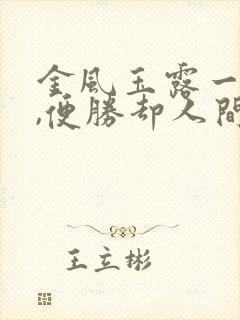 金風玉露一
,便勝却人間
王立彬